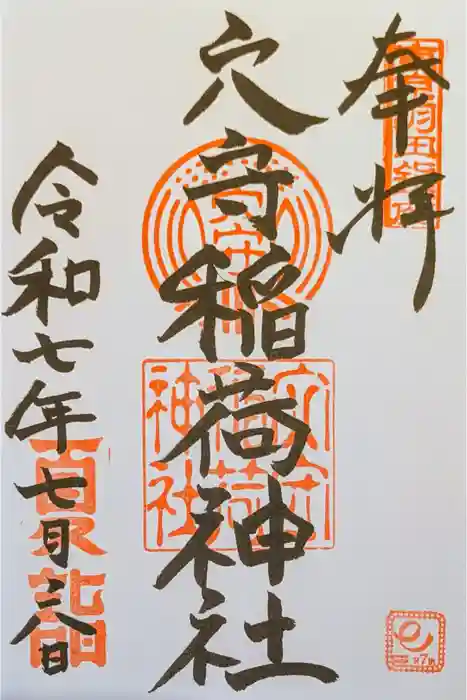 奉拝
穴守稲荷神社
穴守稲荷神社
令和七年七月 日
夏詣